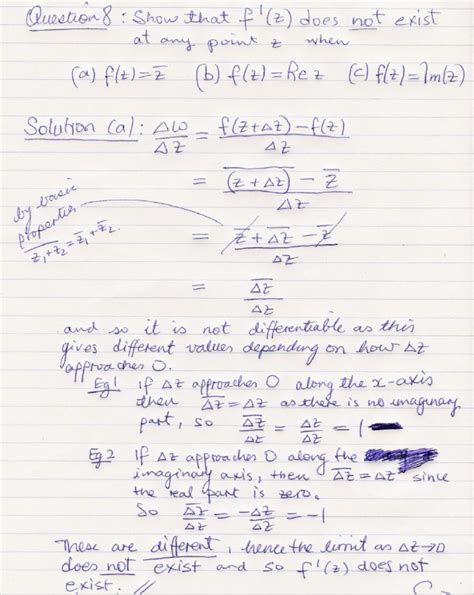 Question 8: Show that f'(z) does not exist
at any point z when
(a) f(z) = z̅ (b) f(z) = Re z (c) f(z) = Im(z)
Solution (a): Δω/Δz = (f(z+Δz) − f(z))/Δz
= (\overline{(z+Δz)} − z̅)/Δz
by basic
properties
\overline{z₁+z₂} = z̅₁+z̅₂.
= (z̅ + \overline{Δz} − z̅)/Δz
= \overline{Δz}/Δz
and so it is not differentiable as this
gives different values depending on how Δz
approaches 0.
Eg1 If Δz approaches 0 along the x-axis
then \overline{Δz} = Δz as there is no imaginary
part, so \overline{Δz}/Δz = Δz/Δz = 1
Eg2 If Δz approaches 0 along the
imaginary axis, then \overline{Δz} = Δz since
the real part is zero.
So \overline{Δz}/Δz = −Δz/Δz = −1
These are different, hence the limit as Δz→0
does not exist and so f'(z) does not
exist. //